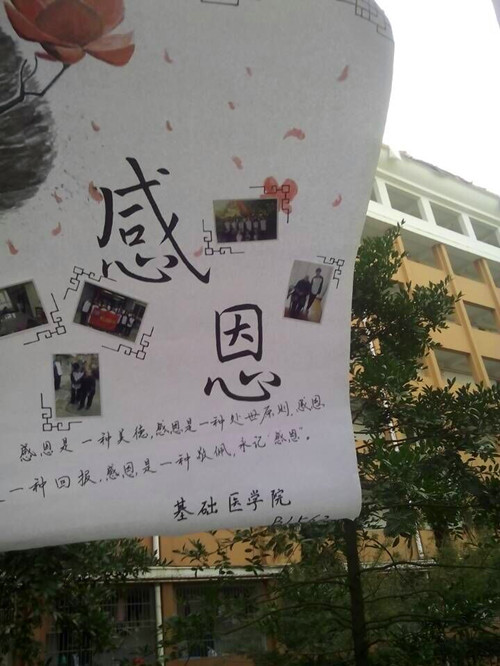 感
恩
感恩是一种美德,感恩是一种处世原则,感恩
一种回报,感恩是一种敬佩,永记“感恩”。
基础医学院